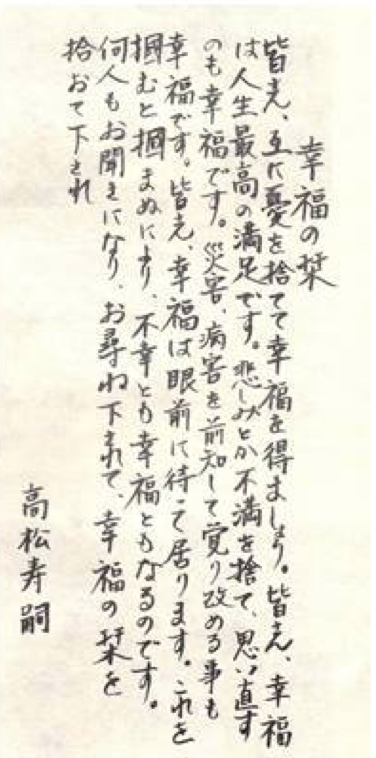 幸福の栞
皆え、互に憂を捨てて幸福を得ましょう。皆え、幸福
は人生最高の満足です。悲しみとか不満を捨て、思い直す
のも幸福です。災害、病害を前知して覚り改める事も
幸福です。皆え、幸福は眼前に待って居ります。これを
掴むと掴まぬにより、不幸とも幸福ともなるのです。
何人もお聞きになり、お尋ね下されて、幸福の栞を
拾おて下され
高松寿嗣